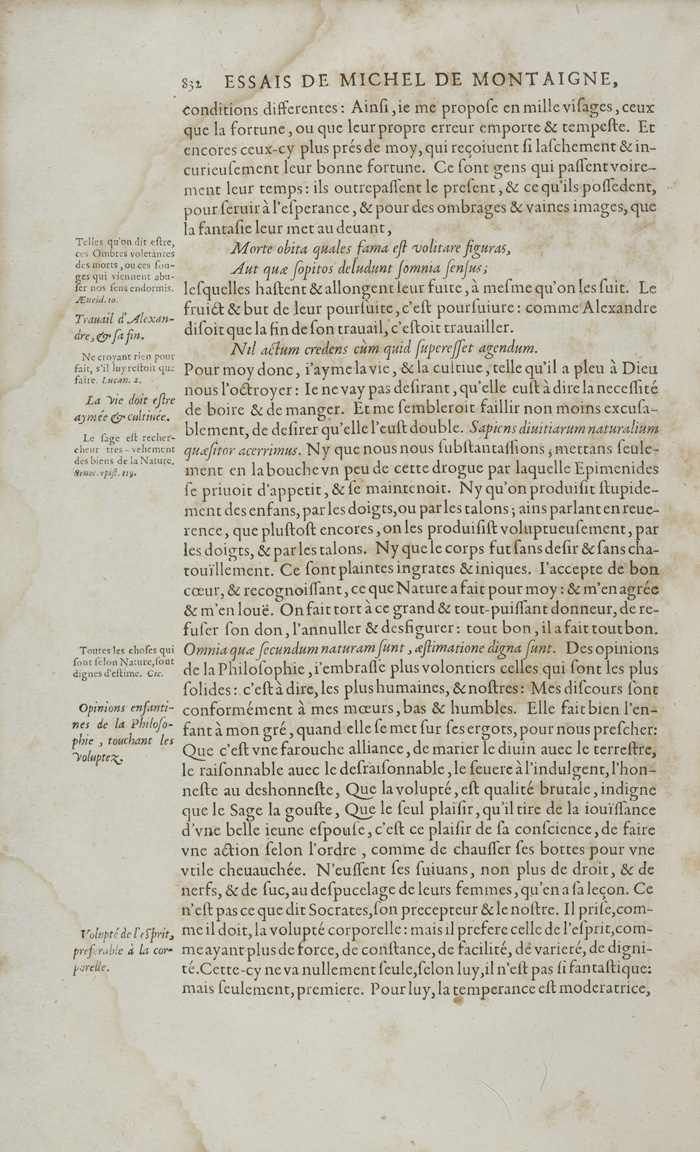 832 ESSAIS DE MICHEL DE MONTAIGNE,
conditions differentes: Ainſi, ie me propoſe en mille viſages, ceux
que la fortune, ou que leur propre erreur emporte & tempeſte. Et
encores ceux-cy plus prés de moy, qui reçoiuent ſi laſchement & in-
curieuſement leur bonne fortune. Ce ſont gens qui paſſent voire-
ment leur temps: ils outrepaſſent le preſent, & ce qu'ils poſſedent,
pour ſeruir à l'eſperance, & pour des ombrages & vaines images, que
la fantaſie leur met au deuant,
Telles qu'on dit eſtre,
ces Ombres voletantes
des morts, ou ces ſon-
ges qui viennent abu-
ſer nos ſens endormis.
Æneid. 10.
Morte obita quales fama eſt volitare figuras,
Aut quæ ſopitos deludunt ſomnia ſenſus;
leſquelles haſtent & allongent leur fuite, à meſme qu'on les ſuit. Le
fruict & but de leur pourſuite, c'eſt pourſuiure: comme Alexandre
diſoit que la fin de ſon trauail, c'eſtoit trauailler.
Trauail d'Alexan-
dre, & ſa fin.
Nil actum credens cùm quid ſupereſſet agendum.
Ne croyant rien pour
fait, s'il luy reſtoit que
faire. Lucan. 2.
Pour moy donc, i'ayme la vie, & la cultiue, telle qu'il a pleu à Dieu
nous l'octroyer: Ie ne vay pas deſirant, qu'elle euſt à dire la neceſſité
de boire & de manger. Et me ſembleroit faillir non moins excuſa-
blement, de deſirer qu'elle l'euſt double. Sapiens diuitiarum naturalium
quæſitor acerrimus. Ny que nous nous ſubſtantaſſions, mettans ſeule-
ment en la bouche vn peu de cette drogue par laquelle Epimenides
ſe priuoit d'appetit, & ſe maintenoit. Ny qu'on produiſit ſtupide-
ment des enfans, par les doigts, ou par les talons; ains parlant en reue-
rence, que pluſtoſt encores, on les produiſiſt voluptueuſement, par
les doigts, & par les talons. Ny que le corps fut ſans deſir & ſans cha-
touïllement. Ce ſont plaintes ingrates & iniques. I'accepte de bon
cœur, & recognoiſſant, ce que Nature a fait pour moy: & m'en agrée
& m'en louë. On fait tort à ce grand & tout-puiſſant donneur, de re-
fuſer ſon don, l'annuller & desfigurer: tout bon, il a fait tout bon.
La vie doit eſtre
aymée & cultiuée.
Le ſage eſt recher-
cheur tres-vehement
des biens de la Nature.
Senec. epiſt. 119.
Omnia quæ ſecundum naturam ſunt, æſtimatione digna ſunt. Des opinions
de la Philoſophie, i'embraſſe plus volontiers celles qui ſont les plus
ſolides: c'eſt à dire, les plus humaines, & noſtres: Mes diſcours ſont
conformément à mes mœurs, bas & humbles. Elle fait bien l'en-
fant à mon gré, quand elle ſe met ſur ſes ergots, pour nous preſcher:
Que c'eſt vne farouche alliance, de marier le diuin auec le terreſtre,
le raiſonnable auec le deſraiſonnable, le ſeuere à l'indulgent, l'hon-
neſte au deshonneſte, Que la volupté, eſt qualité brutale, indigne
que le Sage la gouſte, Que le ſeul plaiſir, qu'il tire de la iouïſſance
d'vne belle ieune eſpouſe, c'eſt ce plaiſir de ſa conſcience, de faire
vne action ſelon l'ordre, comme de chauſſer ſes bottes pour vne
vtile cheuauchée. N'euſſent ſes ſuiuans, non plus de droit, & de
nerfs, & de ſuc, au deſpucelage de leurs femmes, qu'en a ſa leçon. Ce
n'eſt pas ce que dit Socrates, ſon precepteur & le noſtre. Il priſe, com-
me il doit, la volupté corporelle: mais il prefere celle de l'eſprit, com-
me ayant plus de force, de conſtance, de facilité, de varieté, de digni-
té. Cette-cy ne va nullement ſeule, ſelon luy, il n'eſt pas ſi fantaſtique:
mais ſeulement, premiere. Pour luy, la temperance eſt moderatrice,
Toutes les choſes qui
ſont ſelon Nature, ſont
dignes d'eſtime. Cic.
Opinions enfanti-
nes de la Philoſo-
phie, touchant les
Voluptez.
Volupté de l'eſprit,
preferable à la cor-
porelle.